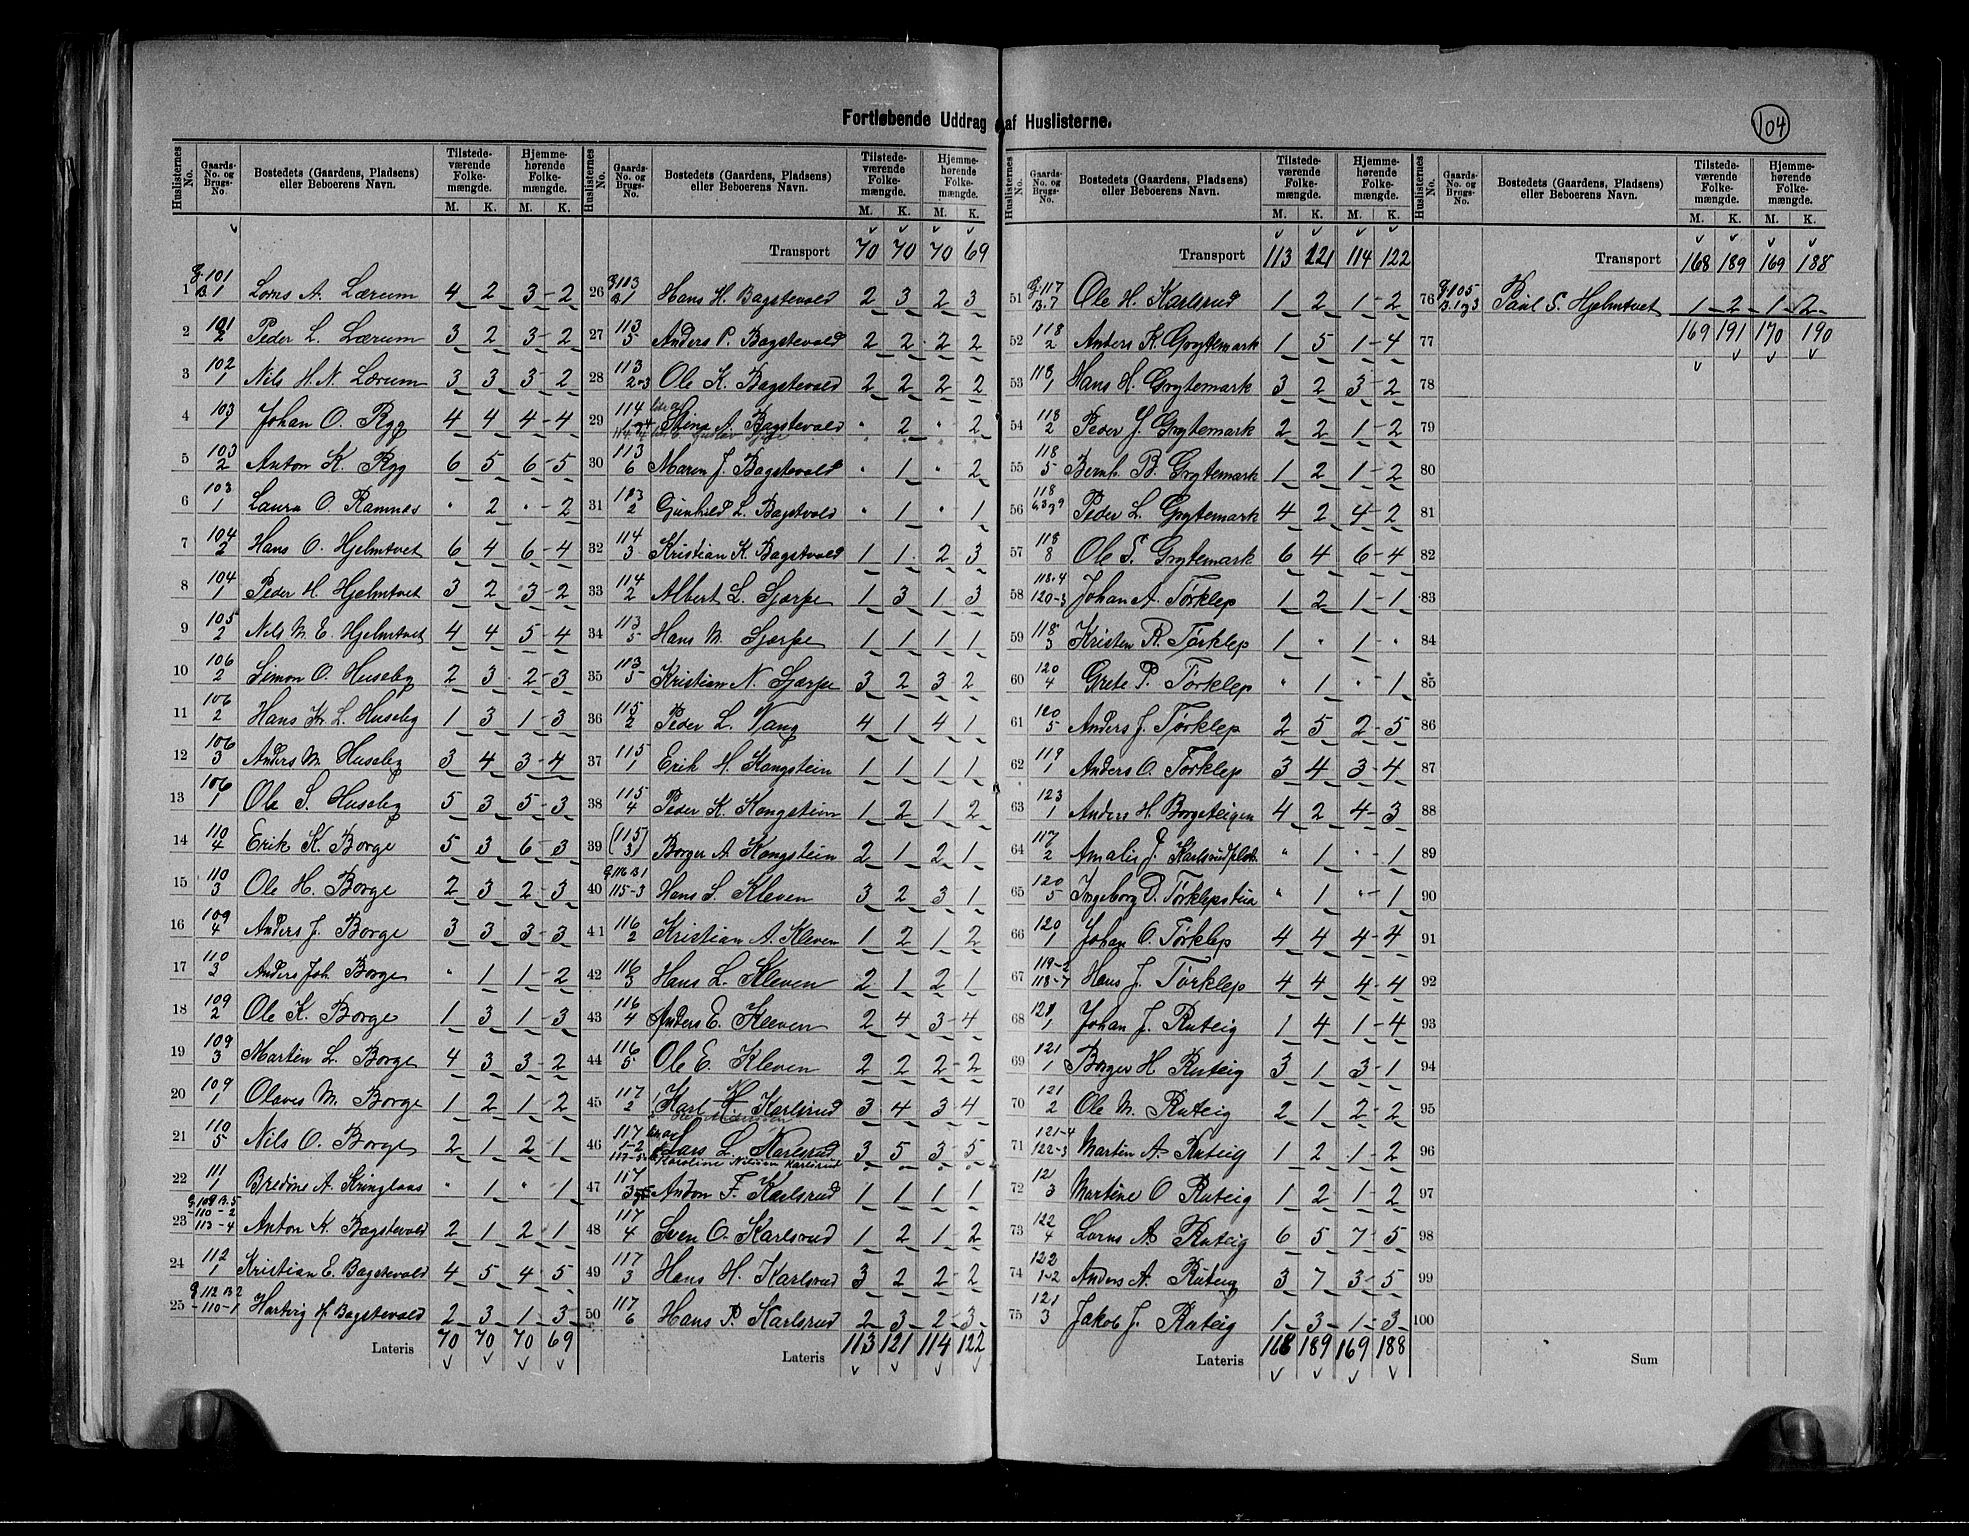 Fortløbende Uddrag af Huslisterne.
104
Huslisternes No. Gaards-No. og Brugs-No. Bostedets (Gaardens, Pladsens) eller Beboerens Navn. Tilstedeværende Folkemængde. M. K. Hjemmehørende Folkemængde. M. K.
1 G. 101 B. 1 Lorns A. Lærum 4 2 3 2
2 101 2 Peder L. Lærum 3 2 3 2
3 102 1 Nils H. N. Lærum 3 3 3 2
4 103 1 Johan O. Ryg 4 4 4 4
5 103 2 Anton K. Ryg 6 5 6 5
6 103 1 Laura O. Ramnes " 2 " 2
7 104 2 Hans O. Hjelmtvet 6 4 6 4
8 104 1 Peder H. Hjelmtvet 3 2 3 2
9 105 2 Nils M. E. Hjelmtvet 4 4 5 4
10 106 2 Simon O. Huseby 2 3 2 3
11 106 2 Hans Kr. L. Huseby 1 3 1 3
12 106 3 Anders M. Huseby 3 4 3 4
13 106 1 Ole S. Huseby 5 3 5 3
14 110 4 Erik K. Borge 5 3 6 3
15 110 3 Ole H. Borge 2 3 2 3
16 109 4 Anders J. Borge 3 3 3 3
17 110 3 Anders Joh. Borge " 1 1 2
18 109 2 Ole K. Borge 1 3 1 3
19 109 3 Martin L. Borge 4 3 3 2
20 109 1 Olaves M. Borge 1 2 1 2
21 110 5 Nils O. Borge 2 1 2 1
22 111 1 Bredine A. Kringlaas " 1 " 1
23 G. 109 B. 5 - 110 - 2 113 - 4 Anton K. Bagstevold 2 1 2 1
24 112 1 Kristian E. Bagstevold 4 5 4 5
25 G 112 B 2 - 110 - 1 Hartvig H. Bagstevold 2 3 1 3
Lateris 70 70 70 69
Huslisternes No. Gaards-No. og Brugs-No. Bostedets (Gaardens, Pladsens) eller Beboerens Navn. Tilstedeværende Folkemængde. M. K. Hjemmehørende Folkemængde. M. K.
Transport 70 70 70 69
26 G. 113 B 1 Hans H. Bagstevold 2 3 2 3
27 113 5 Anders P. Bagstevold 2 2 2 2
28 113 2-3 Ole K. Bagstevold 2 2 2 2
29 114 Stina N. Bagstevold " 2 " 2
30 113 6 Maren J. Bagstevold " 1 " 2
31 113 2 Gunhild L. Bagstvold " 1 " 1
32 114 3 Kristian K. Bagstvold 1 1 2 3
33 114 2 Albert L. Sjærpe 1 3 1 3
34 113 5 Hans M. Sjærpe 1 1 1 1
35 113 5 Kristian N. Sjærpe 3 2 3 2
36 115 2 Peder L. Vang 4 1 4 1
37 115 1 Erik H. Kongstein 1 1 1 1
38 115 4 Peder K. Kongstein 1 2 1 2
39 (115 3) Borger A. Kongstein 2 1 2 1
40 G. 116 B 1 115-3 Hans S. Kleven 3 2 3 1
41 116 2 Kristian A. Kleven 1 2 1 2
42 116 3 Hans L. Kleven 2 1 2 1
43 116 4 Anders E. Kleven 2 4 3 4
44 116 5 Ole E. Kleven 2 2 2 2
45 117 2 Karl N. Karlsrud 3 4 3 4
46 117 1-2 Lars L. Karlsrud 3 5 3 5
Karoline Nilsen Karlsrud
47 117 Andon F. Karlsrud 1 1 1 1
48 117 4 Sven O. Karlsrud 1 2 1 2
49 117 3 Hans H. Karlsrud 3 2 2 2
50 117 6 Hans P. Karlsrud 2 3 2 3
Lateris 113 121 114 122
Huslisternes No. Gaards-No. og Brugs-No. Bostedets (Gaardens, Pladsens) eller Beboerens Navn. Tilstedeværende Folkemængde. M. K. Hjemmehørende Folkemængde. M. K.
Transport 113 121 114 122
51 G. 117 B. 7 Ole H. Karlsrud 1 2 1 2
52 118 2 Anders K. Grytemark 1 5 1 4
53 118 1 Hans H. Grytemark 3 2 3 2
54 118 2 Peder J. Grytemark 2 2 1 2
55 118 5 Bernh. B. Grytemark 1 2 1 2
56 118 6,3 og 9 Peder L. Grytemark 4 2 4 2
57 118 8 Ole S. Grytemark 6 4 6 4
58 118-4 120-3 Johan A. Tørklep 1 2 1 1
59 118 3 Kristen R. Tørklep 1 " 1 "
60 120 4 Grete P. Tørklep " 1 " 1
61 120 5 Anders J. Tørklep 2 5 2 5
62 119 1 Anders O. Tørklep 3 4 3 4
63 123 1 Anders H. Borgeteigen 4 2 4 3
64 117 2 Amalie J. Karlsrud " 1 " 1
65 120 5 Ingeborg D. Tørklepstua " 1 " 1
66 120 1 Johan O. Tørklep 4 4 4 4
67 119-2 118-7 Hans J. Tørklep 4 4 4 4
68 121 1 Johan J. Ruteig 1 4 1 4
69 121 1 Borger H. Ruteig 3 1 3 1
70 121 2 Ole M. Ruteig 2 1 2 2
71 121-4 122-3 Martin A. Ruteig 1 2 1 2
72 121 3 Martine O. Ruteig 1 2 1 2
73 122 4 Lorns A. Ruteig 6 5 7 5
74 122 1-2 Anders A. Ruteig 3 7 3 5
75 121 3 Jakob J. Ruteig 1 3 1 3
Lateris 168 189 169 188
Huslisternes No. Gaards-No. og Brugs-No. Bostedets (Gaardens, Pladsens) eller Beboerens Navn. Tilstedeværende Folkemængde. M. K. Hjemmehørende Folkemængde. M. K.
Transport 168 189 169 188
76 G. 105 B. 1 og 3 Paul S. Hjelmtvet 1 2 1 2
77 169 191 170 190
78
79
80
81
82
83
84
85
86
87
88
89
90
91
92
93
94
95
96
97
98
99
100
Sum